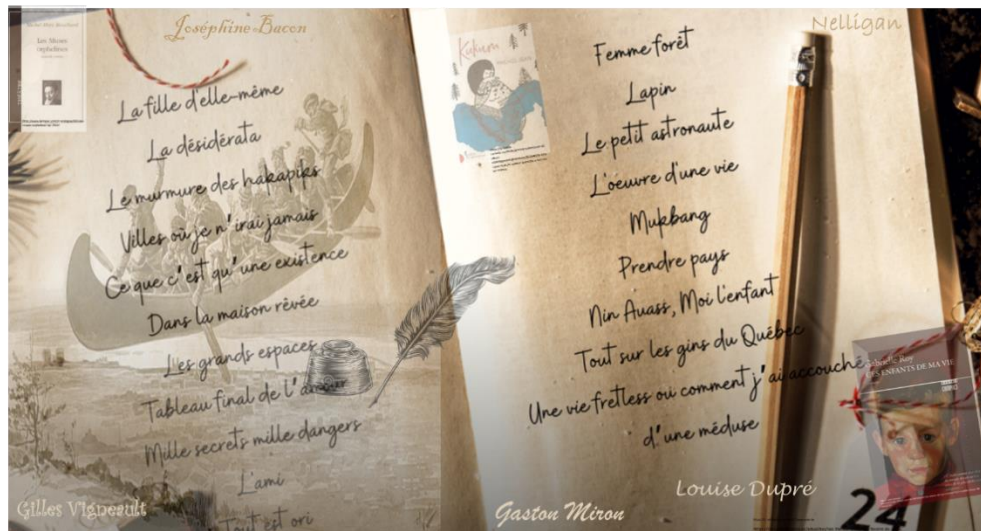 Joséphine Bacon
Les Muses
orphelines
La fille d'elle-même
La désidérata
Le murmure des hakapiks
Villes où je n'irai jamais
Ce que c'est qu'une existence
Dans la maison rêvée
Les grands espaces
Tableau final de l'amour
Mille secrets mille dangers
L'ami
Tout est ori
Gilles Vigneault
Nelligan
Kukum
Femme forêt
Lapin
Le petit astronaute
L'oeuvre d'une vie
Mukbang
Prendre pays
Nin Auass, Moi l'enfant
Tout sur les gins du Québec
Une vie fretless ou comment j'ai accouché
d'une méduse
Gabrielle Roy
CES ENFANTS DE MA VIE
Louise Dupré
Gaston Miron
24